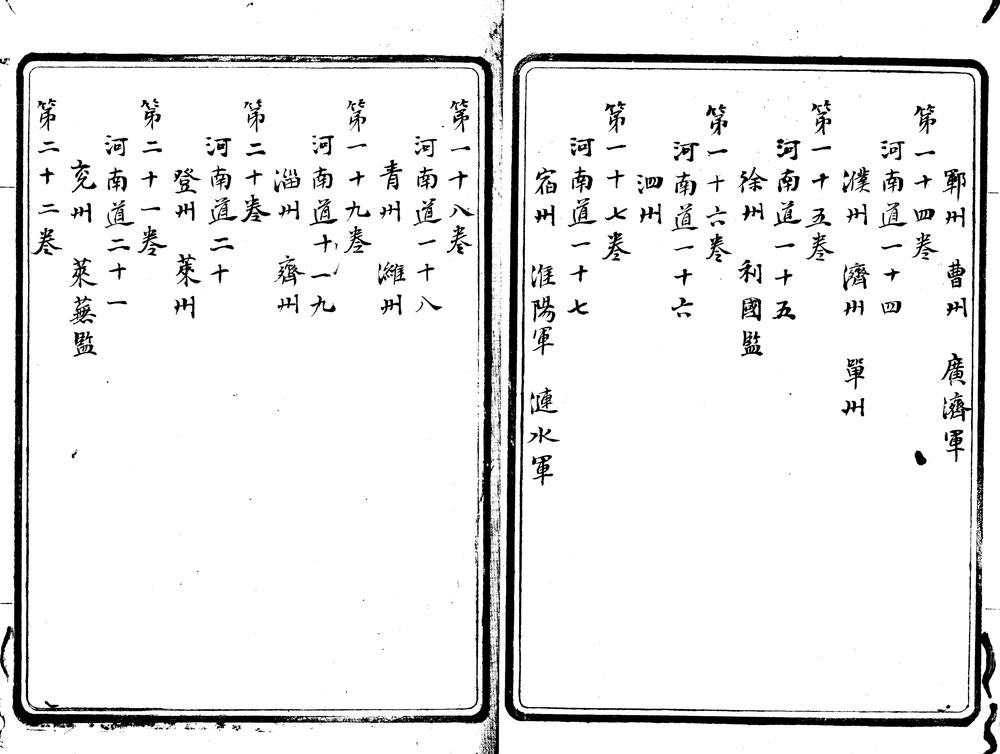 鄆州　曹州　廣濟軍
第一十四卷
河南道一十四
濮州　濟州　單州
第一十五卷
河南道一十五
徐州　利國監
第一十六卷
河南道一十六
泗州
第一十七卷
河南道一十七
宿州　淮陽軍　漣水軍
第一十八卷
河南道一十八
青州　濰州
第一十九卷
河南道十一九
淄州　齊州
第二十卷
河南道二十
登州　萊州
第二十一卷
河南道二十一
兗州　萊蕪監
第二十二卷